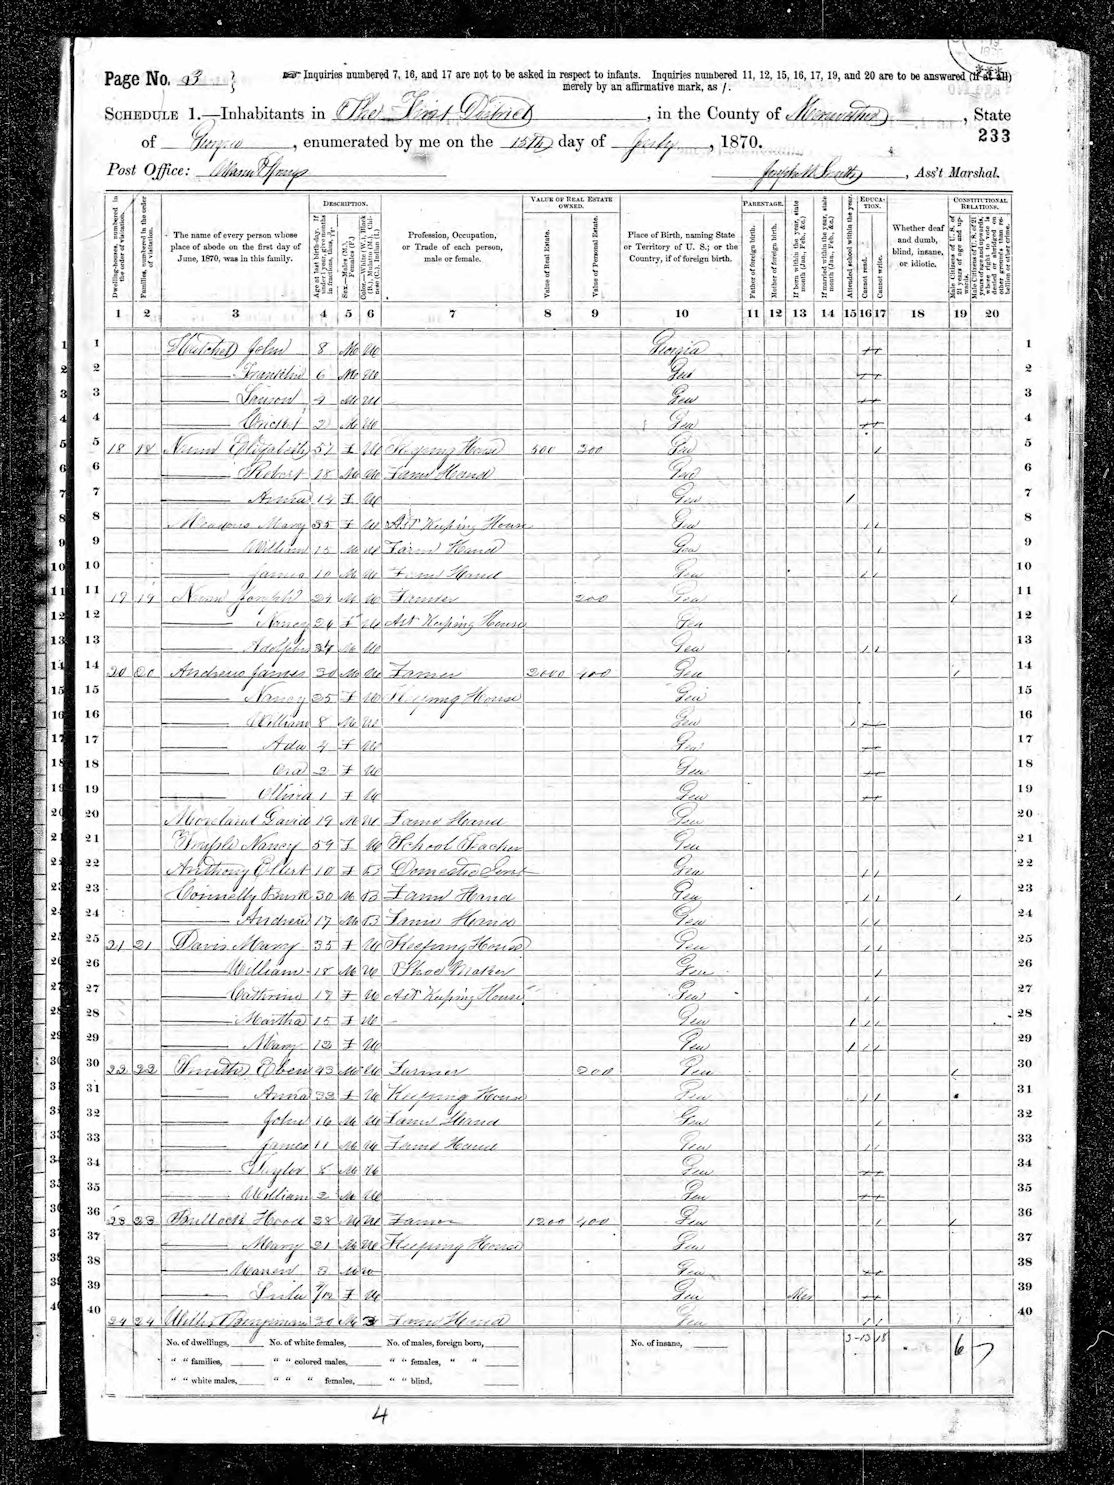 Page No. 3
Inquiries numbered 7, 16, and 17 are not to be asked in respect to infants. Inquiries numbered 11, 12, 15, 16, 17, 19, and 20 are to be answered (if at all)
merely by an affirmative mark, as /.
SCHEDULE 1.—Inhabitants in The First District, in the County of Meriwether, State
of Georgia, enumerated by me on the 15th day of July, 1870.
233
Post Office: Warm Springs
Ass't Marshal.
DESCRIPTION.
VALUE OF REAL ESTATE OWNED.
PARENTAGE.
EDUCATION.
CONSTITUTIONAL RELATIONS.
Dwelling-houses, numbered in the order of visitation.
Families, numbered in the order of visitation.
The name of every person whose place of abode on the first day of June, 1870, was in this family.
Age at last birth-day. If under 1 year, give months in fractions, thus, 3/12.
Sex.—Males (M.), Females (F.)
Color.—White (W.), Black (B.), Mulatto (M.), Chinese (C.), Indian (I.)
Profession, Occupation, or Trade of each person, male or female.
Value of Real Estate.
Value of Personal Estate.
Place of Birth, naming State or Territory of U. S.; or the Country, if of foreign birth.
Father of foreign birth.
Mother of foreign birth.
If born within the year, state month (Jan., Feb., &c.)
If married within the year, state month (Jan., Feb., &c.)
Attended school within the year.
Cannot read.
Cannot write.
Whether deaf and dumb, blind, insane, or idiotic.
Male Citizens of U. S. of 21 years of age and upwards.
Male Citizens of U. S. of 21 years of age and upwards, whose right to vote is denied or abridged on other grounds than rebellion or other crime.
1 2 3 4 5 6 7 8 9 10 11 12 13 14 15 16 17 18 19 20
1 John 8 M W Georgia 1
2 Franklin 6 M W Geo 2
3 4 M W Geo 3
4 2 M W Geo 4
5 18 18 Nunn Elizabeth 57 F W Keeping House 300 Geo / 5
6 Robert 18 M W Farm Hand Geo 6
7 Anna 14 F W Geo / 7
8 Meadows Mary 35 F W Ast Keeping House Geo / / 8
9 William 15 M W Farm Hand Geo / 9
10 James 10 M W Farm Hand Geo / / 10
11 19 19 Nunn Joseph 24 M W Farmer 200 Geo / 11
12 Nancy 26 F W Ast Keeping House Geo 12
13 Adolphus M W Geo / / 13
14 20 20 Andrews James 30 M W Farmer 2000 400 Geo / 14
15 Nancy 25 F W Keeping House Geo 15
16 William 8 M W Geo / 16
17 Ada 4 F W Geo 17
18 F W Geo 18
19 1 F W Geo 19
20 Moreland David 19 M W Farm Hand Geo 20
21 Nancy 59 F W School Teacher Geo 21
22 Anthony 10 F B Domestic Servt Geo / / 22
23 Connelly 30 M B Farm Hand Geo / / / 23
24 Andrew 17 M B Farm Hand Geo / / 24
25 21 21 Davis Mary 35 F W Keeping House Geo / / 25
26 William 18 M W Shoe Maker Geo / 26
27 Cathrine 17 F W Ast Keeping House Geo / / 27
28 Martha 15 F W Geo / / / 28
29 Mary 12 F W Geo / / / 29
30 22 22 Smith Eben 43 M W Farmer 200 Geo / 30
31 Anna 33 F W Keeping House Geo / / 31
32 John 16 M W Farm Hand Geo / 32
33 James 11 M W Farm Hand Geo / / 33
34 Taylor 8 M W Geo 34
35 William 2 M W Geo 35
36 23 23 Bullock Hood 28 M W Farmer 1200 400 Geo / / 36
37 Mary 21 M W Keeping House Geo 37
38 Warren 3 M W Geo 38
39 Lula F W Geo 39
40 24 24 Willis Bengemon 30 M B Farm Hand Geo / / / 40
No. of dwellings, No. of white females, No. of males, foreign born, No. of insane, 3-13 18 6
" " families, " " colored males, " " females, " "
" " white males, " " " females, " " blind,
4